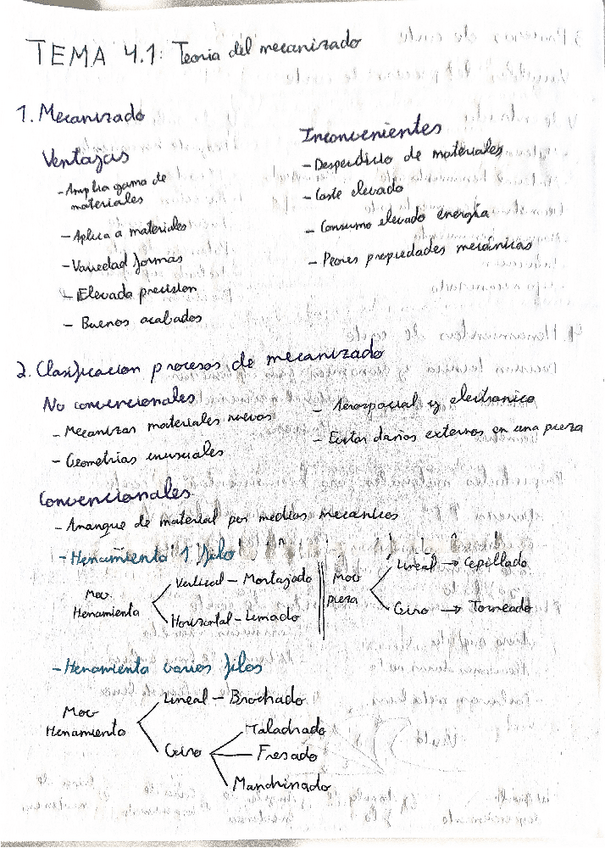 TEMA 4.1: Teoria del mecanizado
1. Mecanizado
Ventajas
- Amplia gama de
materiales
- Aplica a materiales
- Variedad formas
- Elevada precision
- Buenos acabados
Inconvenientes
- Desperdicio de materiales
- Coste elevado
- Consumo elevado energía
- Peores propiedades mecánicas
2. Clasificacion procesos de mecanizado
No convencionales
- Mecanizar materiales nuevos
- Geometrias inusuales
- Aerospacial y electronico
- Evitar daños externos en una pieza
Convencionales
- Arranque de material por medios mecanicos
- Herramienta 1 filo
Mov
Herramienta
Vertical - Mortajado
Horizontal - Limado
Mov
pieza
Lineal → Cepillado
Giro → Torneado
- Herramienta varios filos
Mov
Herramienta
Lineal - Brochado
Giro
Taladrado
Fresado
Mandrinado